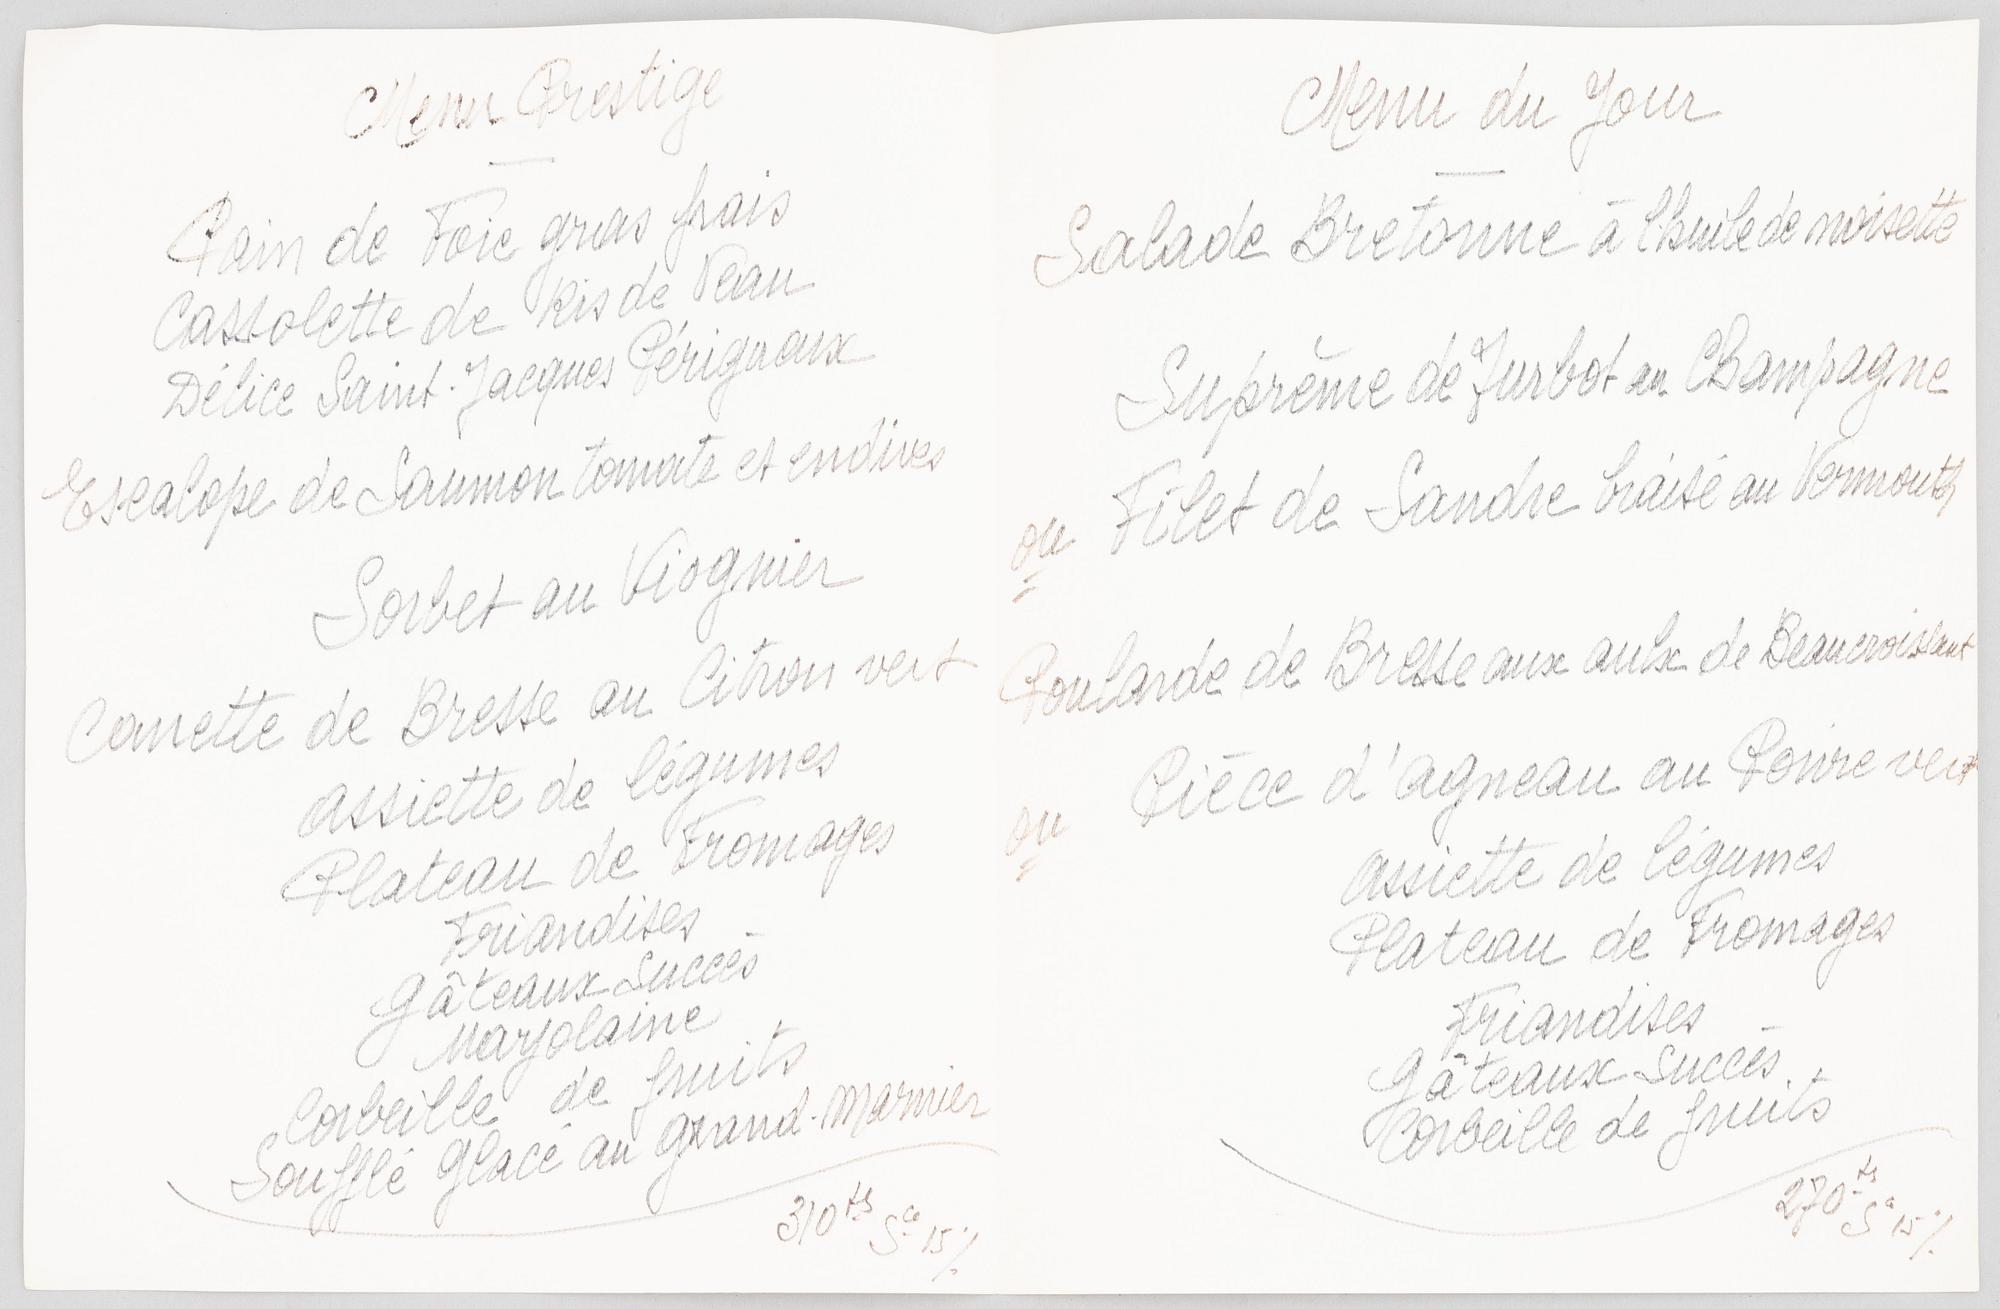 Menu Prestige
Pain de Foie gras frais
Cassolette de Ris de Veau
Délice Saint-Jacques Périgueux
Escalope de Saumon tomate et endives
Sorbet au Viognier
Canette de Bresse au Citron vert
assiette de légumes
Plateau de Fromages
Friandises
Gâteaux Succès
Marjolaine
Corbeille de fruits
Soufflé Glacé au Grand-Marnier
310 fs Sce 15%
Menu du Jour
Salade Bretonne à l'huile de noisette
Suprême de Turbot au Champagne
ou Filet de Sandre braisé au Vermouth
Poularde de Bresse aux aulx de Beaucroissant
ou Pièce d'agneau au Poivre vert
assiette de légumes
Plateau de Fromages
Friandises
Gâteaux Succès
Corbeille de fruits
270 fs Sce 15%